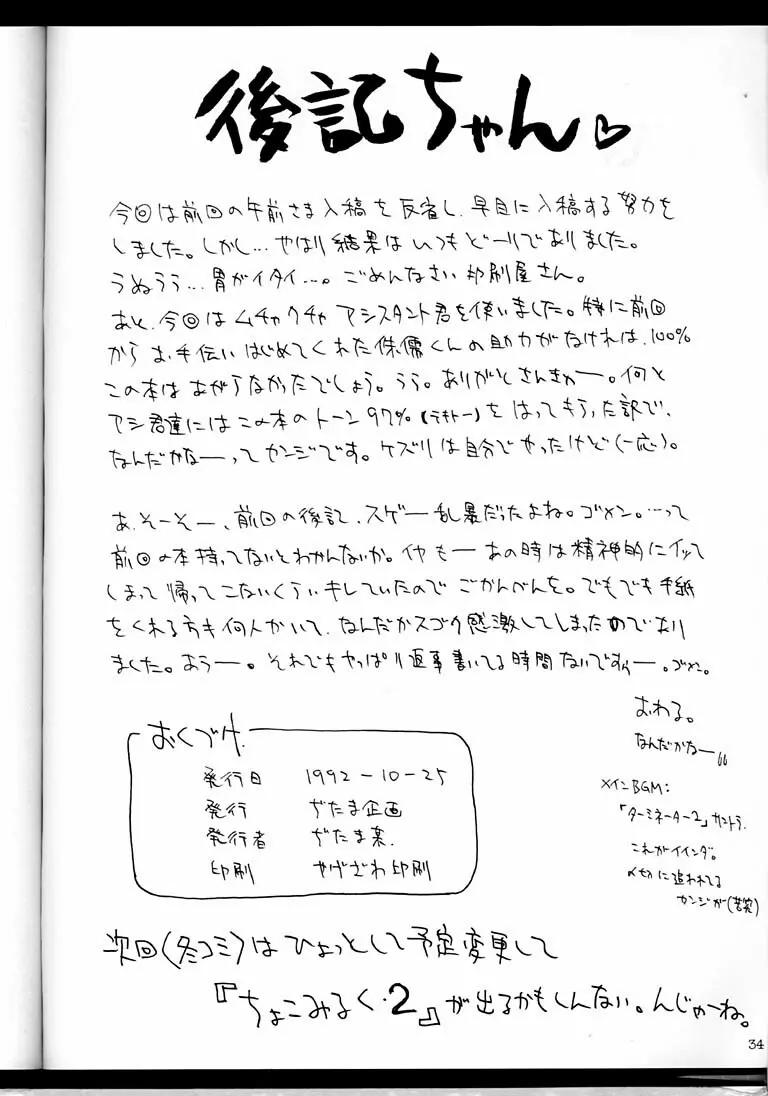 後記ちゃん♡
今回は前回の午前さま入稿を反省し、早目に入稿する努力を
しました。しかし…やはり結果はいつもどーりでありました。
うぬうう…胃がイタイ…。ごめんなさい印刷屋さん。
あと、今回はムチャクチャアシスタント君を使いました。特に前回
からお手伝いはじめてくれた侏儒くんの助力がなければ、100%
この本はあがらなかったでしょう。うう。ありがとさんきゅー。何と
アシ君達にはこの本のトーン97%(テキトー)をはってもらった訳で、
なんだかなーってカンジです。ケズリは自分でやったけど(一応)。
あ、そーそー、前回の後記、スゲー乱暴だったよね。ゴメン。…って
前回の本持ってないとわかんないか。イヤもーあの時は精神的にイッて
しまって帰ってこないくらいキレていたのでごかんべんを。でもでも手紙
をくれる方も何人かいて、なんだかスゴク感激してしまったのであり
ました。おうー。それでもやっぱり返事書いてる時間ないですぅー。ゴメン。
おわる。
なんだかなー
おくづけ
発行日 1992-10-25
発行 ぢたま企画
発行者 ぢたま某
印刷 やげざわ印刷
メインBGM:
「ターミネーター2」サントラ
これがイインダ。
〆切に追われてる
カンジが(苦笑)
次回(冬コミ)はひょっとして予定変更して
『ちょこみるく・2』が出るかもしんない。んじゃーね。
34